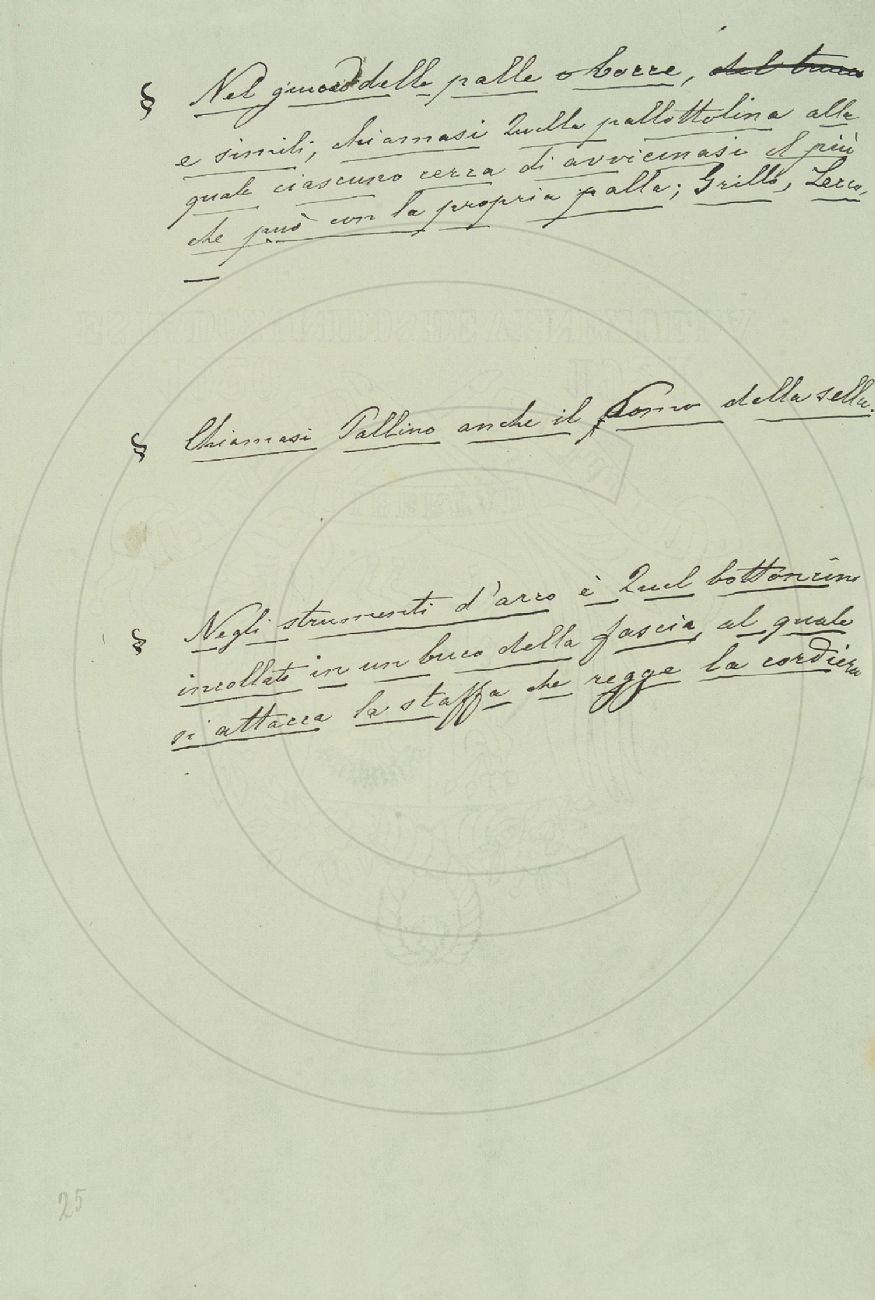 § Nel giuoco delle palle o borre, del truco
e simili, chiamasi Quella pallottolina alla
quale ciascuno cerca di avvicinasi il più
che può con la propria palla; Grillo, Lecco.
§ Chiamasi Pallino anche il Pomo della sella.
§ Negli strumenti d'arco è Quel bottoncino
incollato in un buco della fascia, al quale
si attacca la staffa che regge la cordiera
25